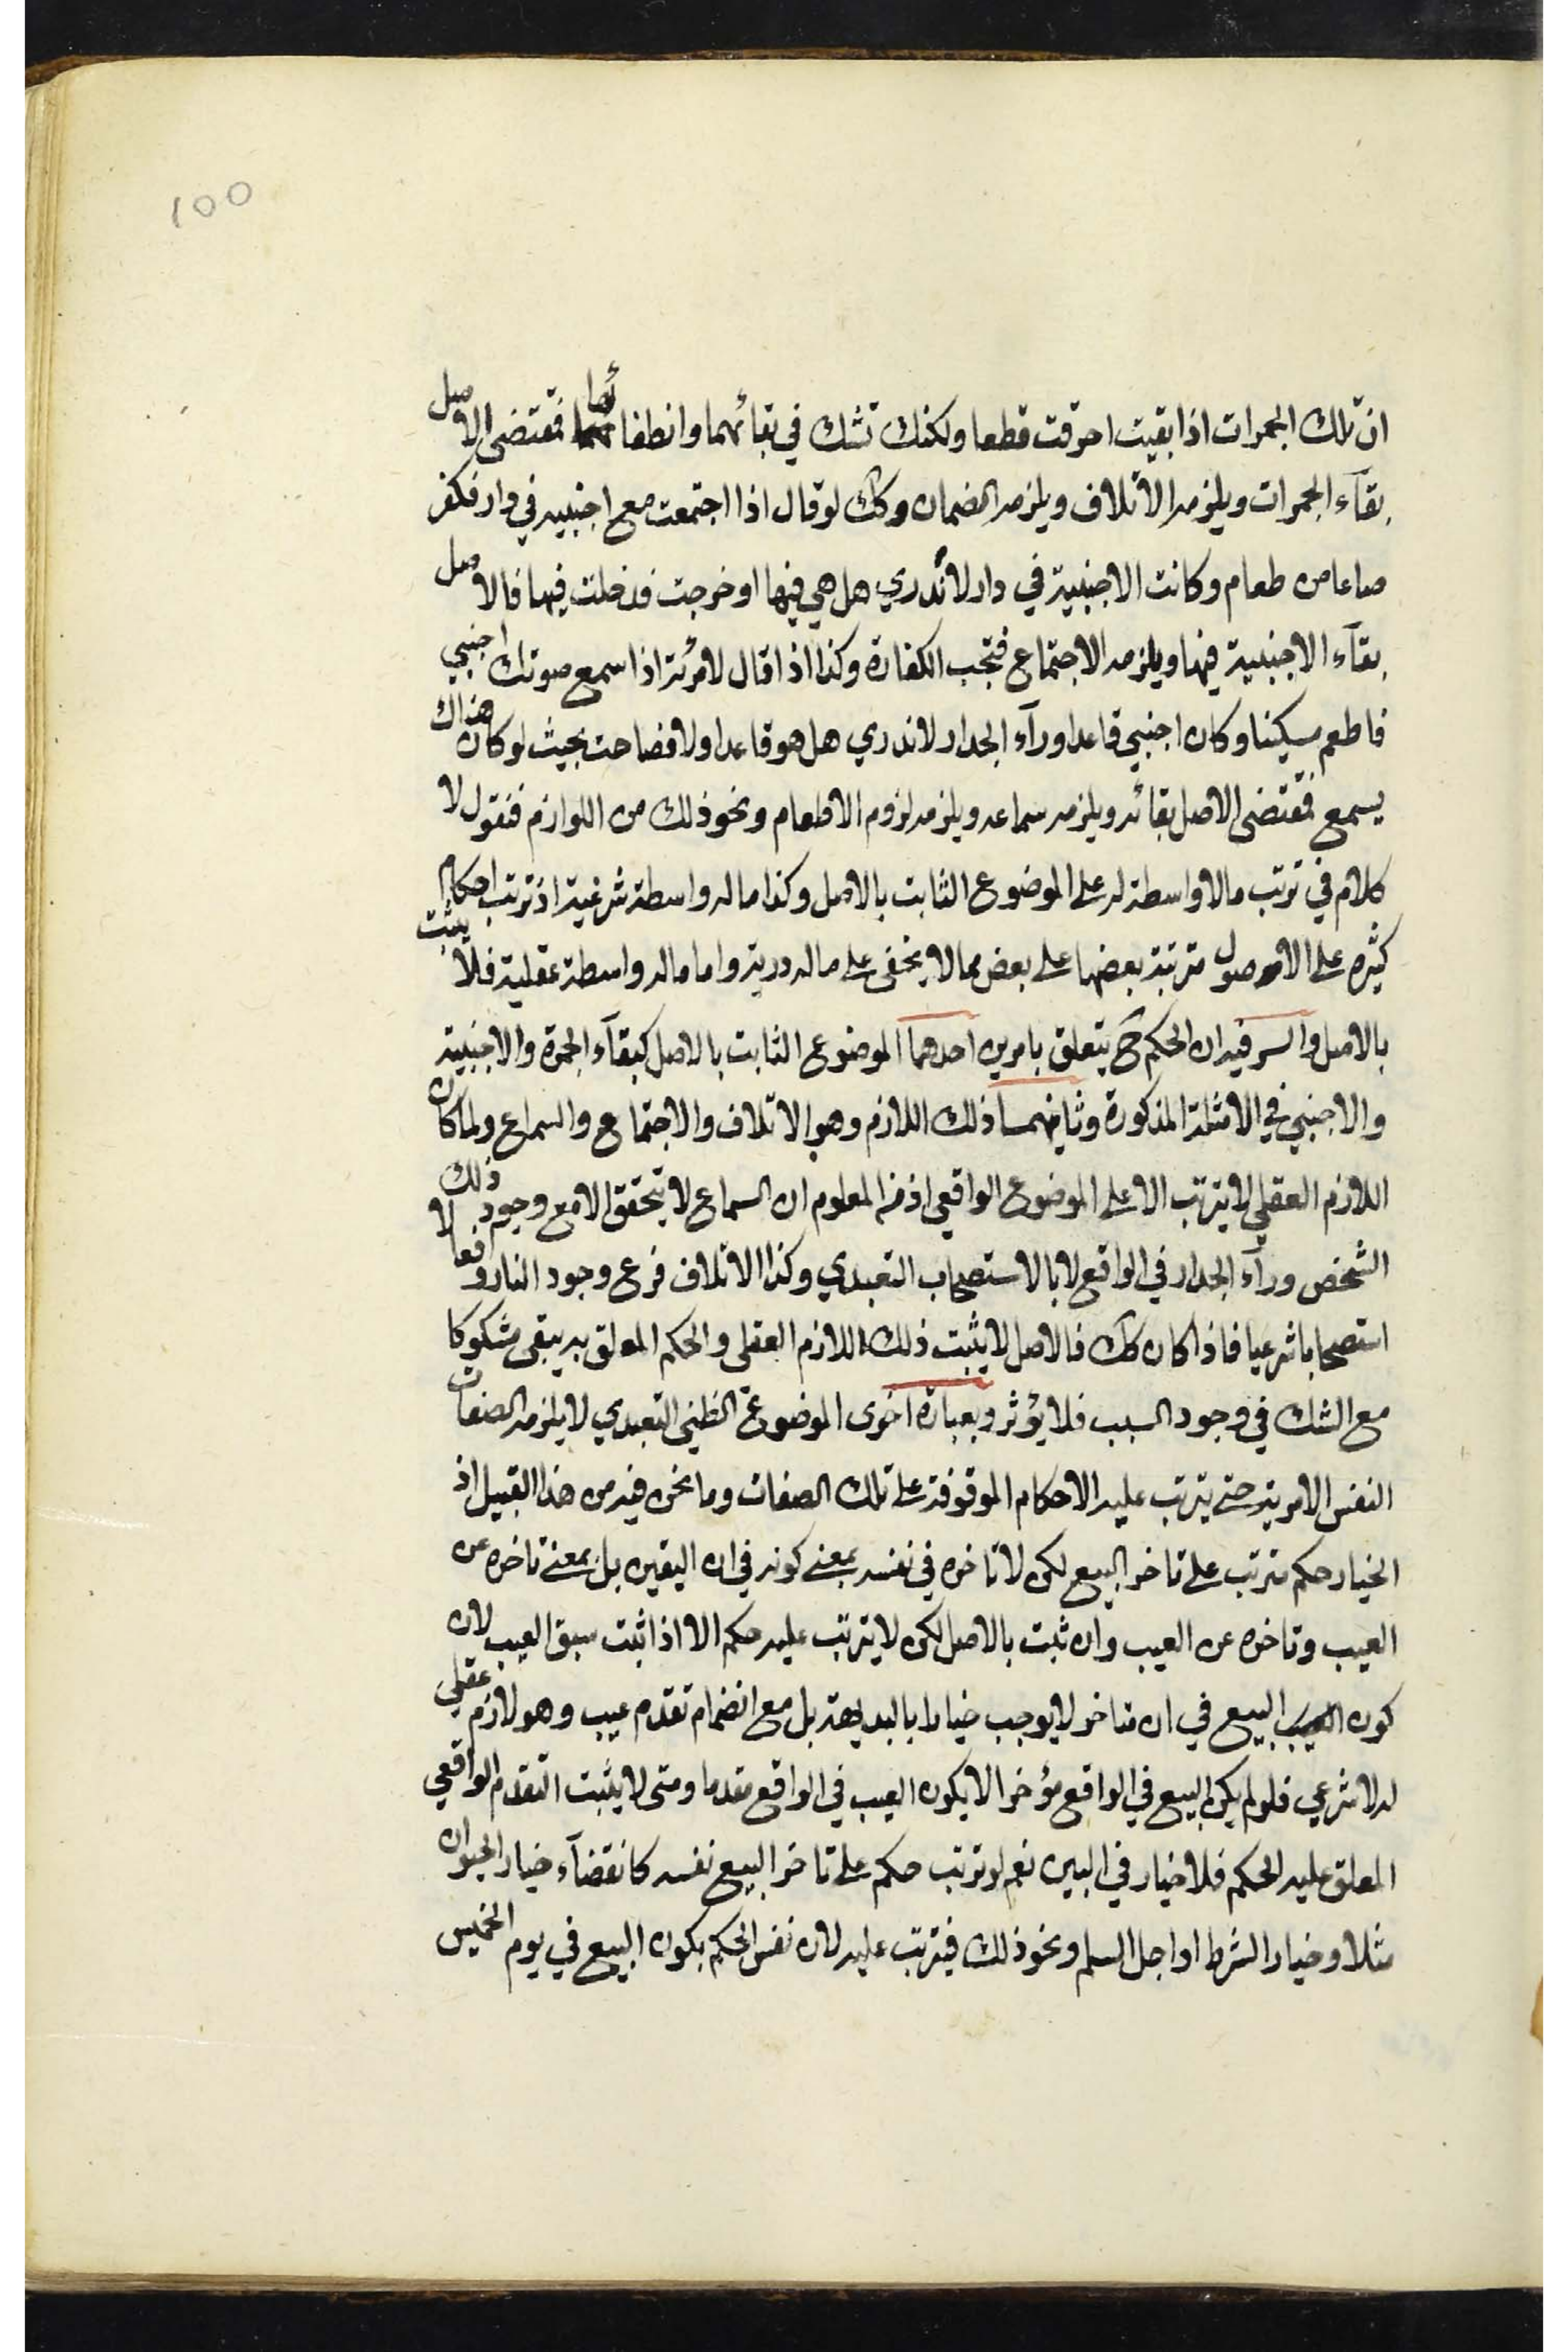 100
ان تلك الجمرات اذا بقيت احرقت قطعا ولكنك تشك في بقائهما وانطفائها فمقتضى الاصل
بقآء الجمرات ويلزمه الاتلاف ويلزمه الضمان وكك لو قال اذا اجتمعت مع اجنبيه في دار فكفر
صاعا من طعام وكانت الاجنبية في دار لا ندري هل هي فيها او خرجت فدخلت فيها فالاصل
بقآء الاجنبية فيها ويلزمه الاجتماع فتجب الكفارة وكذا اذا قال لامرئته اذا سمع صوتك اجنبي
فاطعم مسكينا وكان اجنبي قاعدا ورآء الجدار لا ندري هل هو قاعد اولا فصاحت بحيث لو كان هناك
يسمع فمقتضى الاصل بقائه ويلزمه سماعه ويلزمه لزوم الاطعام ونحو ذلك من اللوازم فنقول لا
كلام في ترتب مالا واسطة له على الموضوع الثابت بالاصل وكذا ما له واسطة شرعية اذ ترتب احكام
كثيره على الاصول مترتبة بعضها على بعض مما لا يخفى على ماله دربة واما ماله واسطة عقلية فلا يثبت
بالاصل والسر فيه ان الحكم ح يتعلق بامرين احدهما الموضوع الثابت بالاصل كبقآء الجمرة والاجنبية
والاجنبي في الامثلة المذكورة وثانيهما ذلك اللازم وهو الاتلاف والاجتماع والسماع ولما كان
اللازم العقلي لا يترتب الا على الموضوع الواقعي اذ من المعلوم ان السماع لا يتحقق الا مع وجود ذلك
الشخص ورآء الجدار في الواقع لا بالاستصحاب التعبدي وكذا الاتلاف فرع وجود النار واقعا لا
استصحابا شرعيا فاذا كان كك فالاصل لا يثبت ذلك اللازم العقلي والحكم المعلق به يبقى مشكوكا
مع الشك في وجود السبب فلا يؤثر وبعبارة اخرى الموضوع الظني التعبدي لا يلزمه الصفات
النفس الامرية حتى يترتب عليه الاحكام الموقوفة على تلك الصفات وما نحن فيه من هذا القبيل اذ
الخيار حكم مترتب على تاخر البيع لكن لا تاخره في نفسه بمعنى كونه في ان اليقين بل بمعنى تاخره عن
العيب وتاخره عن العيب وان ثبت بالاصل لكن لا يترتب عليه حكم الا اذا ثبت سبق العيب لان
كون البيع في ان متاخر لا يوجب خيارا بالبديهة بل مع انضمام تقدم عيب وهو لازم عقلي
له لا شرعي فلو لم يكن البيع في الواقع مؤخرا لا يكون العيب في الواقع مقدما ومتى لا يثبت التقدم الواقعي
المعلق عليه الحكم فلا خيار في البين نعم لو ترتب حكم على تاخر البيع نفسه كانقضآء خيار الحيوان
مثلا وخيار الشرط او اجل السلم ونحو ذلك فيترتب عليه لان نفس الحكم بكون البيع في يوم الخميس